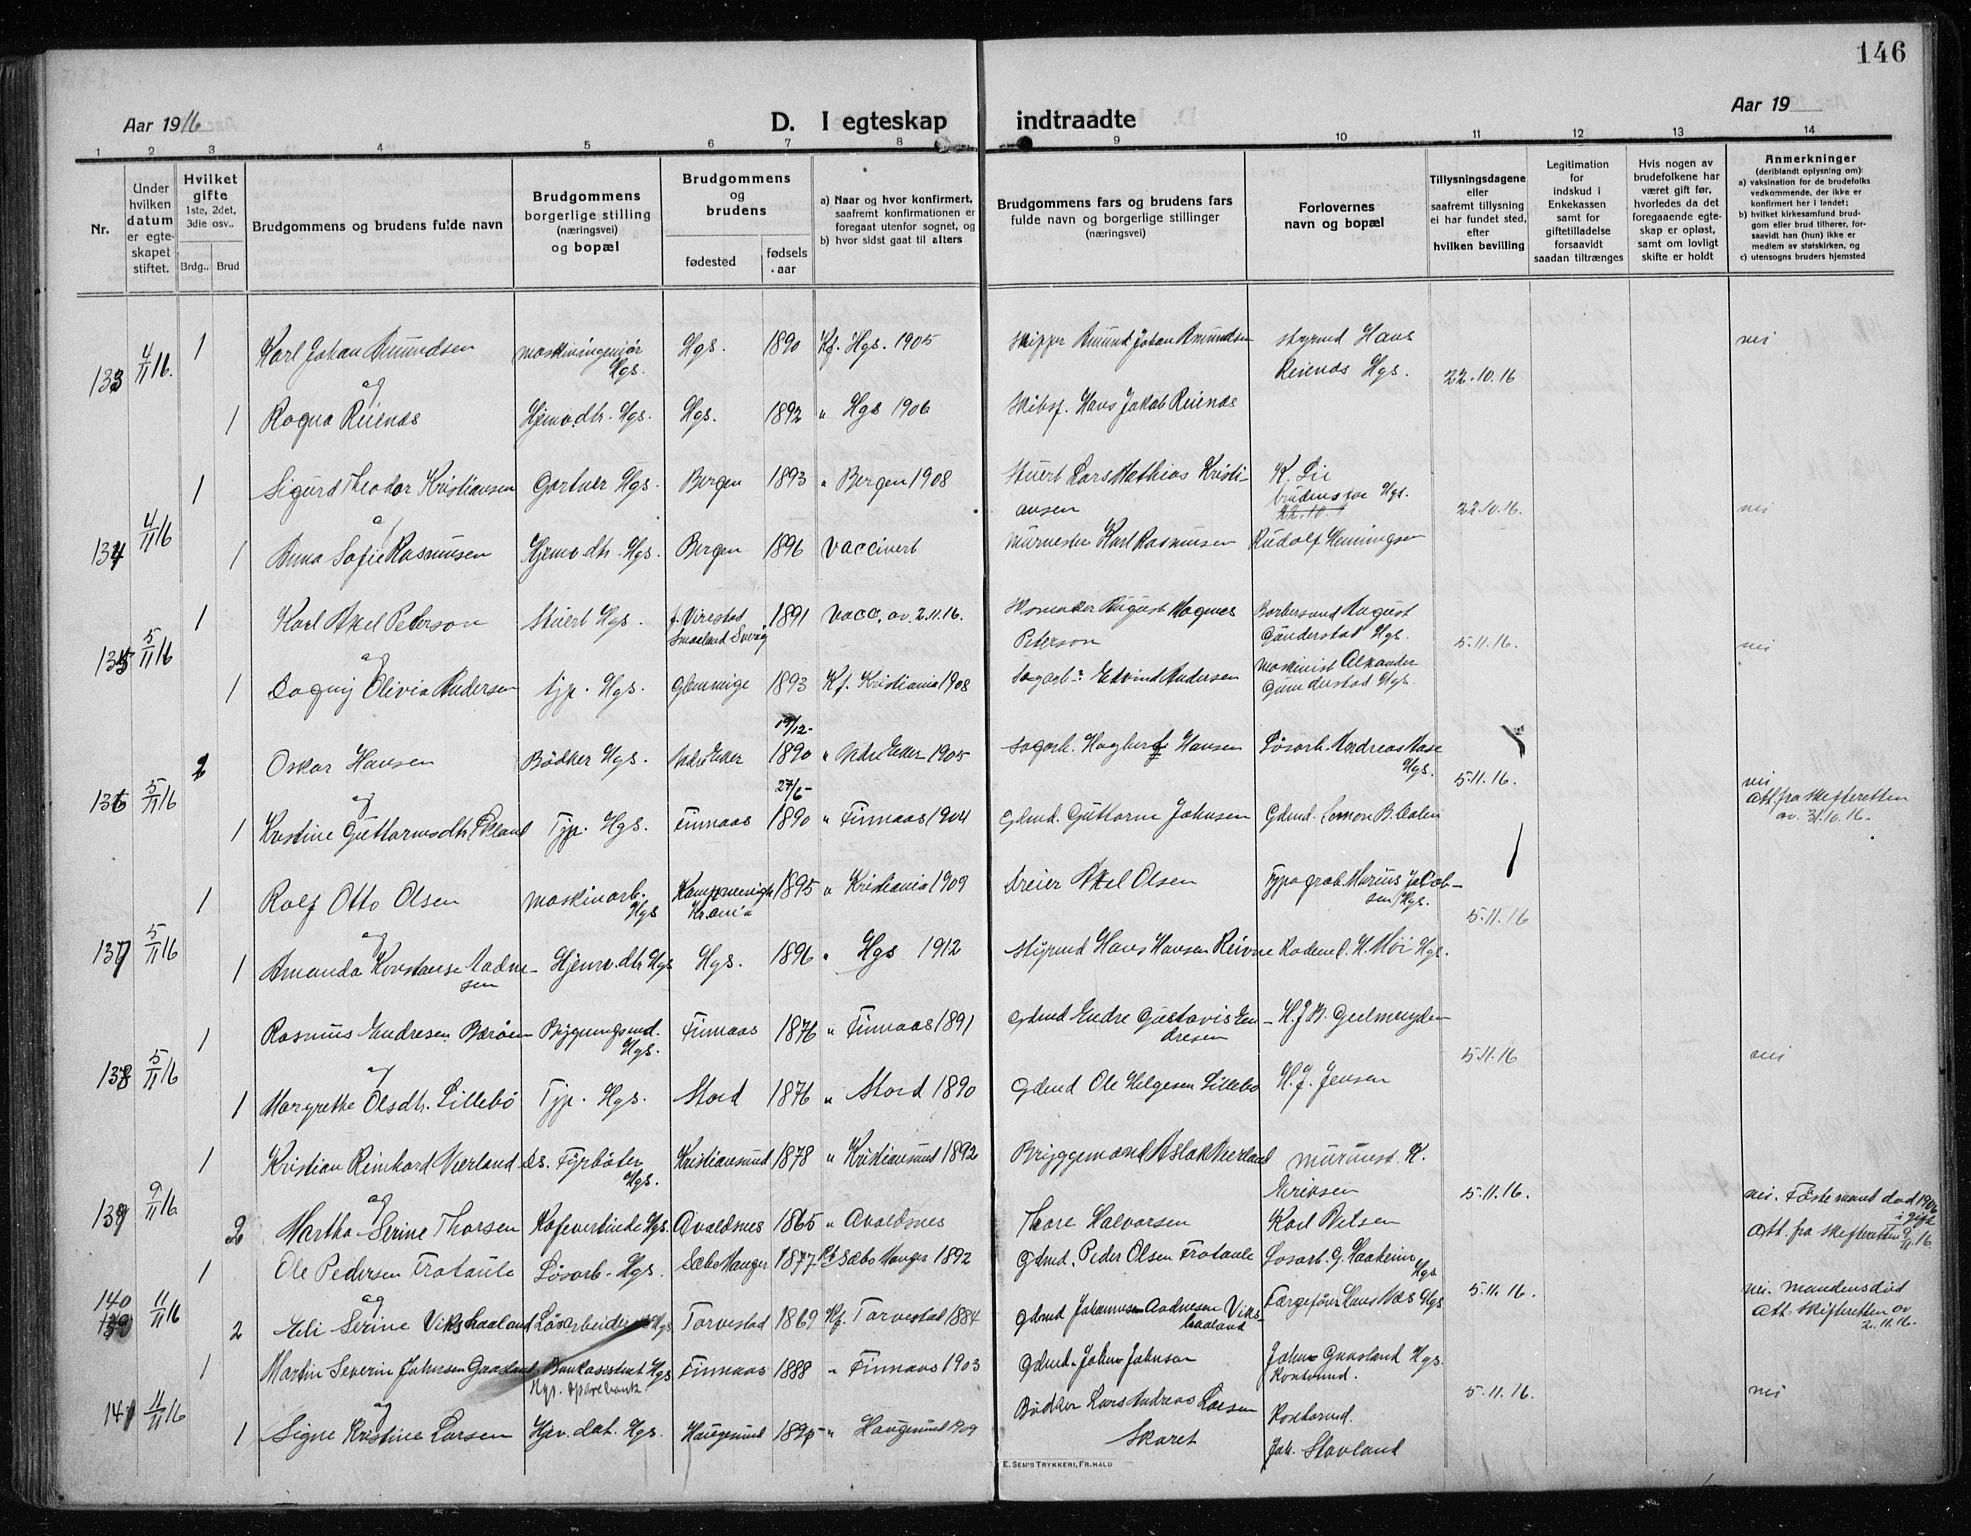 146
Aar 1916
D. I egteskap indtraadte
Aar 19
1 2 3 4 5 6 7 8 9 10 11 12 13 14
Nr.
Under hvilken datum er egteskapet stiftet.
Hvilket gifte 1ste, 2det, 3die osv..
Brdg.. Brud
Brudgommens og brudens fulde navn
Brudgommens borgerlige stilling (næringsvei) og bopæl
Brudgommens og brudens
fødested
fødsels aar
a) Naar og hvor konfirmert, saafremt konfirmationen er foregaat utenfor sognet, og
b) hvor sidst gaat til alters
Brudgommens fars og brudens fars fulde navn og borgerlige stillinger (næringsvei)
Forlovernes navn og bopæl
Tillysningsdagene eller saafremt tillysning ei har fundet sted, efter hvilken bevilling
Legitimation for indskud i Enkekassen samt for giftetilladelse forsaavidt saadan tiltrænges
Hvis nogen av brudefolkene har været gift før, hvorledes da det foregaaende egteskap er opløst, samt om lovligt skifte er holdt
Anmerkninger (deriblandt oplysning om):
a) vaksination for de brudefolks vedkommende, der ikke er konfirmert her i landet;
b) hvilket kirkesamfund brudgom eller brud tilhører, forsaavidt han (hun) ikke er medlem av statskirken, og
c) utensogns bruders hjemsted
133 4/11 16. 1 Karl Johan Amundsen maskiningeniør Hgs. Hgs. 1890 Kf. Hgs. 1905 Skipper Amund Johan Amundsen styrmd Hans Reienæs Hgs. 22.10.16 nei
og
1 Ragna Reienæs Hjemv. dtr. Hgs. Hgs. 1892 " Hgs 1906 Skibsf. Hans Jakob Reienæs
134 4/11 16 1 Sigurd Theodor Kristiansen Gartner Hgs. Bergen 1893 " Bergen 1908 Stuert Lars Mathias Kristiansen K. Lie brudens far Hgs. 22.10.16. nei
1 Anna Sofie Rasmussen Hjemv. dtr. Hgs. Bergen 1896 Vaccinert Murmester Karl Rasmussen Rudolf Henningsen
135 5/11 16 1 Karl Axel Peterson Stuert Hgs. f. Virestad Smaaland Sverig 1891 Vacc. av 2.11.16. Skomaker August Magnus Peterson Barbersvend August Gunderstad Hgs. 5.11.16. nei
og
1 Dagny Olivia Andersen tjp. Hgs. Glemmige 1893 Kf. Kristiania 1908 Sagarb. Edvind Andersen Maskinist Alexander Gunderstad Hgs.
136 5/11 16 2 Oskar Hansen Bødker Hgs. Nedre Eker 19/12- 1890 " Nedre Eker 1905 Sagarb. Hagbert Hansen Løsarb. Andreas Aase Hgs. 5.11.16. nei
og
1 Kristine Guttormsdtr. Økland Tjp. Hgs. Finnaas 27/6- 1890 " Finnaas 1904 Gdmd. Guttorm Johnsen Gdmd. Simon B. Dalen Att. fra skifteretten av. 31.10.16.
137 5/11 16 1 Rolf Otto Olsen maskinarb. Hgs Kampmenigh. Kr.ania 1895 " Kristiania 1909 Dreier Axel Olsen Typograf Marius Jacobsen Hgs. 5.11.16
og
1 Amanda Konstanse Hgs Hjemv. dtr Hgs Hgs. 1896 " Hgs 1912 Styrmd Hans Hansen H. Høi Hgs.
138 5/11 16 1 Rasmus Endresen Bærøen Bygningsmd. Hgs. Finnaas 1876 " Finnaas 1891 Gdmd Endre Gustavis Endresen H. J. B. Geelmuyden 5.11.16 nei
og
1 Margrethe Olsdtr. Lillebø Tjp. Hgs. Stord 1876 " Stord 1890 Gdmd Ole Helgesen Lillebø H. J. Jensen
139 9/11 16 1 Kristian Reinhard Nerland Ds. Fyrbøter Hgs. Kristiansund 1878 " Kristiansund 1892 Bryggemand Aslak Nerland Murmest. K. Eriksen 5.11.16. nei. Føste mand død 1906
og
2 Martha Serine Thorsen Kafevertinde Hgs. Avaldsnes 1865 " Avaldsnes Thore Halvorsen Karl Nilsen Att. fra skifteretten 9/11 16
140 11/11 16 1 Ole Pedersen Frotaule Løsarb. Hgs. Sæbø Manger 1877 Kf Sæbø Manger 1892 Gdmd. Peder Olsen Frotaule Løsarb. G. Haaheim Hgs 5.11.16. nei. Mandens død
og
2 Eli Serine Vikshaaland Løsarbeider Hgs Torvestad 1869 Kf. Torvestad 1884 Gdmd Johannesen Aadnesen Vikshaaland Færgefører Hans Næs Hgs Att. skifteretten av 2.11.16.
141 11/11 16 1 Martin Severin Johnsen Gaasland Bankassistent Hgs Hgs. sparebank Finnaas 1888 " Finnaas 1903 Gdmd. John Johnson John Gaasland Hgs. Kontormd. 5.11.16. nei
og
1 Signe Kristine Larsen Hjv. dat. Hgs. Haugesund 1895 " Haugesund 1909 Bødker Lars Andreas Larsen Skaret Kontormd. Joh. Stavland
E. SEM'S TRYKKERI, FR.HALD